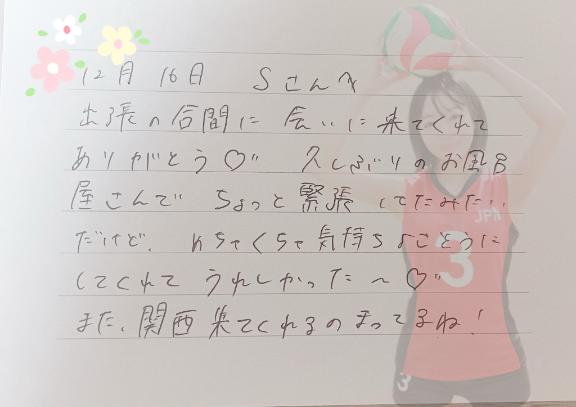 12月16日 Sさんへ
出張の合間に 会いに来てくれて
ありがとう♡" 久しぶりのお風呂
屋さんで ちょっと緊張してたみたい
だけど、めちゃくちゃ気持ちよさそうに
してくれて うれしかった〜♡"
また、関西来てくれるのまってるね!
JPN
3
3